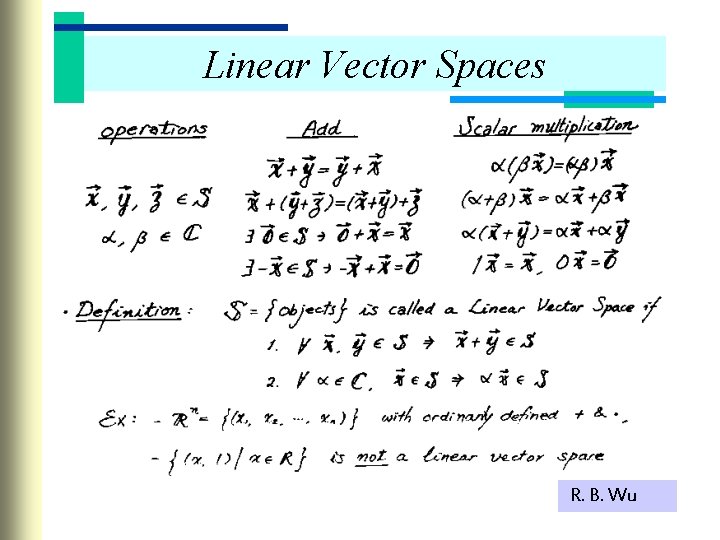 Linear Vector Spaces
operations Add Scalar multiplication
x⃗+y⃗=y⃗+x⃗ α(βx⃗)=(αβ)x⃗
x⃗, y⃗, z⃗ ∈ S x⃗+(y⃗+z⃗)=(x⃗+y⃗)+z⃗ (α+β)x⃗=αx⃗+βx⃗
α, β ∈ ℂ ∃ 0⃗∈S ⇒ 0⃗+x⃗=x⃗ α(x⃗+y⃗)=αx⃗+αy⃗
∃-x⃗∈S ⇒ -x⃗+x⃗=0⃗ 1x⃗=x⃗, 0x⃗=0⃗
· Definition: S={objects} is called a Linear Vector Space if
1. ∀ x⃗, y⃗ ∈ S ⇒ x⃗+y⃗ ∈ S
2. ∀ α∈ℂ, x⃗∈S ⇒ αx⃗∈S
Ex: - ℝⁿ={(x₁, x₂, ..., xₙ)} with ordinary defined + & ·,
- {(x, 1)| x∈R} is not a linear vector spare
R. B. Wu